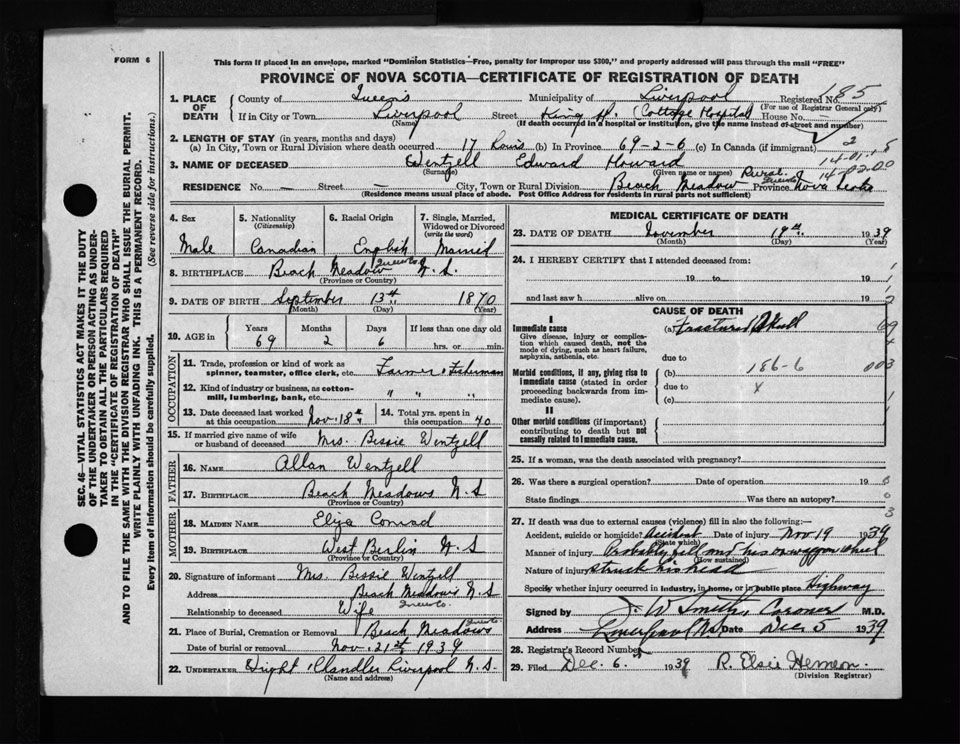 FORM 6
This form if placed in an envelope, marked "Dominion Statistics—Free, penalty for improper use $300," and properly addressed will pass through the mail "FREE"
PROVINCE OF NOVA SCOTIA—CERTIFICATE OF REGISTRATION OF DEATH
1. PLACE OF DEATH County of Queens Municipality of Liverpool Registered No. 185
(For use of Registrar General only)
If in City or Town Liverpool Street King St. (Cottage Hospital) House No. —
(Name) (If death occurred in a hospital or institution, give the name instead of street and number)
2. LENGTH OF STAY (in years, months and days)
(a) In City, Town or Rural Division where death occurred 17 hours (b) In Province 69-2-6 (c) In Canada (if immigrant) 2
3. NAME OF DECEASED Wentzell Edward Howard
(Surname) (Given name or names)
14-01.15
14-02.00
RESIDENCE No. — Street — City, Town or Rural Division Beach Meadow Rural Queens Province Nova Scotia
(Residence means usual place of abode. Post Office Address for residents in rural parts not sufficient)
4. Sex Male
5. Nationality (Citizenship) Canadian
6. Racial Origin English
7. Single, Married, Widowed or Divorced (write the word) Married
8. BIRTHPLACE Beach Meadow Queens Co. N.S.
(Province or Country)
9. DATE OF BIRTH September 13th 1870
(Month) (Day) (Year)
10. AGE in Years 69 Months 2 Days 6 If less than one day old hrs. or min.
OCCUPATION
11. Trade, profession or kind of work as spinner, teamster, office clerk, etc. Farmer & Fisherman
12. Kind of industry or business, as cotton-mill, lumbering, bank, etc. " " "
13. Date deceased last worked at this occupation Nov. 18th
14. Total yrs. spent in this occupation 40
15. If married give name of wife or husband of deceased Mrs. Bessie Wentzell
FATHER
16. NAME Allan Wentzell
17. BIRTHPLACE Beach Meadows N.S
(Province or Country)
MOTHER
18. MAIDEN NAME Eliza Conrad
19. BIRTHPLACE West Berlin N.S
(Province or Country)
20. Signature of informant Mrs. Bessie Wentzell
Address Beach Meadows N.S
Queens Co.
Relationship to deceased Wife
21. Place of Burial, Cremation or Removal Beach Meadows Queens Co.
Date of burial or removal Nov. 21st 1939
22. UNDERTAKER Dight & Chandler Liverpool N.S.
(Name and address)
MEDICAL CERTIFICATE OF DEATH
23. DATE OF DEATH November 19th 1939
(Month) (Day) (Year)
24. I HEREBY CERTIFY that I attended deceased from:
19 to 19
and last saw h alive on 19
CAUSE OF DEATH
I
Immediate cause (a) Fractured Skull
Give disease, injury or complication which caused death, not the mode of dying, such as heart failure, asphyxia, asthenia, etc.
due to
Morbid conditions, if any, giving rise to immediate cause (stated in order proceeding backwards from immediate cause). (b) 186-6
due to x
(c)
II
Other morbid conditions (if important) contributing to death but not causally related to immediate cause.
25. If a woman, was the death associated with pregnancy?
26. Was there a surgical operation? Date of operation 19
State findings Was there an autopsy?
27. If death was due to external causes (violence) fill in also the following:—
Accident, suicide or homicide? Accident Date of injury Nov 19 1939
(State which)
Manner of injury Probably fell and his wagon wheel
(How sustained)
Nature of injury struck his head
Specify whether injury occurred in industry, in home, or in public place Highway
Signed by J. W Smith, Coroner M.D.
Address Liverpool NS Date Dec. 5 1939
28. Registrar's Record Number
29. Filed Dec. 6 1939 R. Elsie Hemeon.
(Division Registrar)
SEC. 46—VITAL STATISTICS ACT MAKES IT THE DUTY OF THE UNDERTAKER OR PERSON ACTING AS UNDERTAKER TO OBTAIN ALL THE PARTICULARS REQUIRED IN THE "CERTIFICATE OF REGISTRATION OF DEATH"
AND TO FILE THE SAME WITH THE DIVISION REGISTRAR WHO SHALL ISSUE THE BURIAL PERMIT.
WRITE PLAINLY WITH UNFADING INK. THIS IS A PERMANENT RECORD.
Every item of information should be carefully supplied. (See reverse side for instructions.)